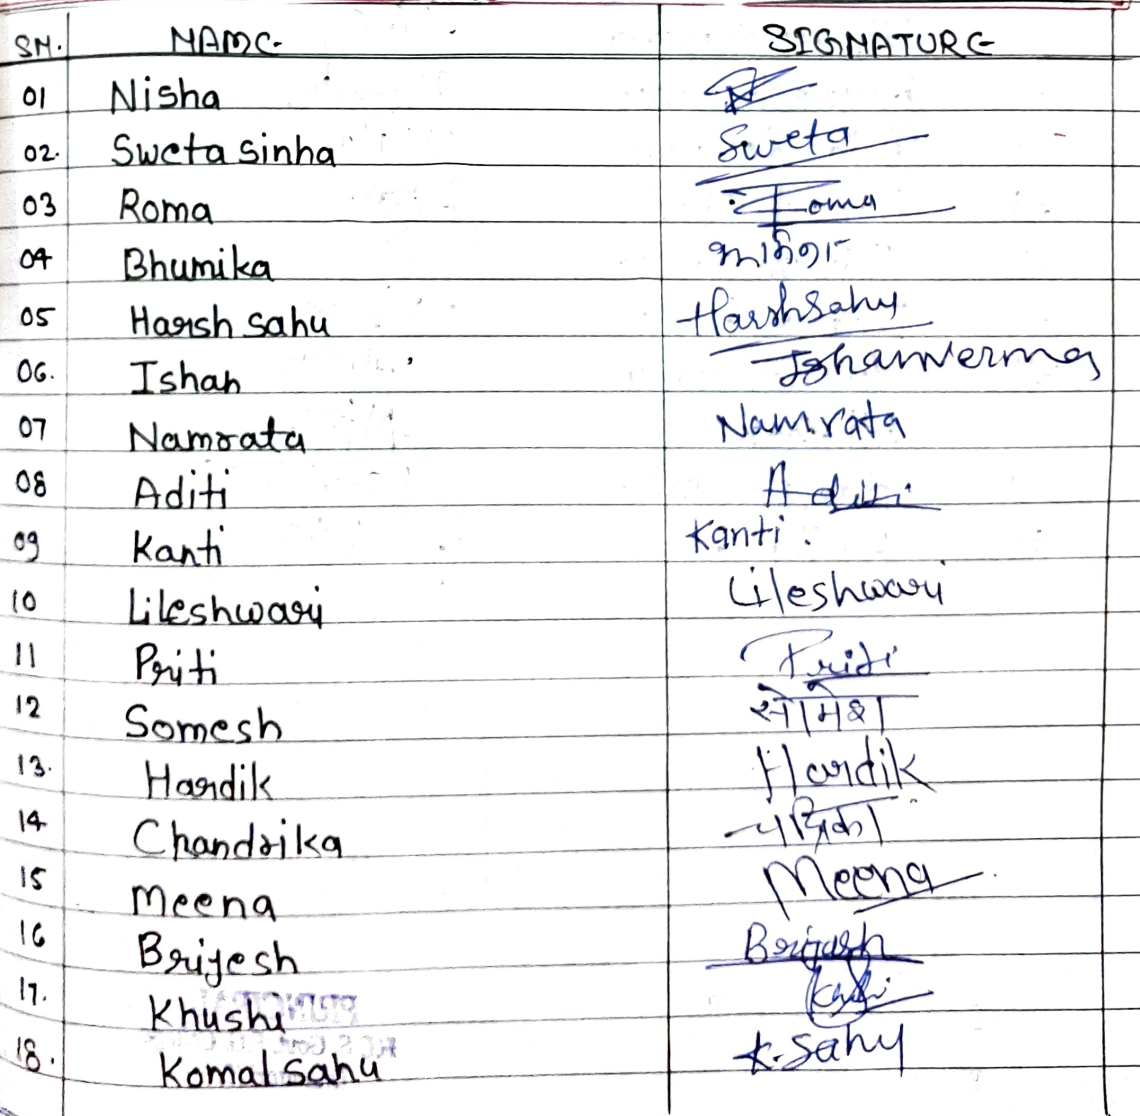 SN. NAME SIGNATURE
01 Nisha
02. Sweta Sinha Sweta
03 Roma Roma
04 Bhumika
05 Harsh Sahu Harsh Sahu
06. Ishan Ishan Verma
07 Namrata Namrata
08 Aditi Aditi
09 Kanti Kanti.
10 Lileshwari Lileshwari
11 Priti Priti
12 Somesh सोमेश
13. Hardik Hardik
14 Chandrika
15 Meena Meena
16 Brijesh Brijesh
17. Khushi
18. Komal Sahu K. Sahu